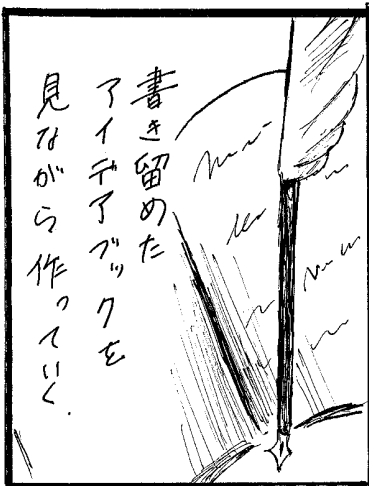 書き留めた
アイデアブックを
見ながら作っていく.